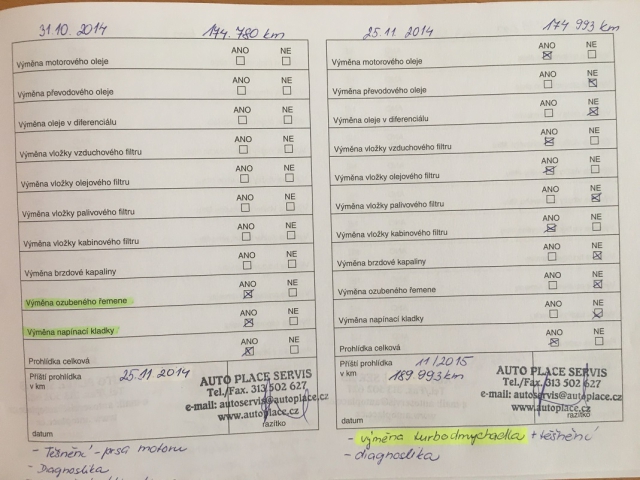 31.10. 2014
174.780 km
ANO NE
Výměna motorového oleje
ANO NE
Výměna převodového oleje
ANO NE
Výměna oleje v diferenciálu
ANO NE
Výměna vložky vzduchového filtru
ANO NE
Výměna vložky olejového filtru
ANO NE
Výměna vložky palivového filtru
ANO NE
Výměna vložky kabinového filtru
ANO NE
Výměna brzdové kapaliny
ANO NE
Výměna ozubeného řemene
ANO NE
Výměna napínací kladky
ANO NE
Prohlídka celková
Příští prohlídka
v km
25.11 2014
AUTO PLACE SERVIS
Tel./Fax. 313 502 627
e-mail: autoservis@autoplace.cz
www.autoplace.cz
razítko
datum
- Těsnění - prsa motoru
- Diagnostika
25.11 2014
174 993 km
ANO NE
Výměna motorového oleje
ANO NE
Výměna převodového oleje
ANO NE
Výměna oleje v diferenciálu
ANO NE
Výměna vložky vzduchového filtru
ANO NE
Výměna vložky olejového filtru
ANO NE
Výměna vložky palivového filtru
ANO NE
Výměna vložky kabinového filtru
ANO NE
Výměna brzdové kapaliny
ANO NE
Výměna ozubeného řemene
ANO NE
Výměna napínací kladky
ANO NE
Prohlídka celková
Příští prohlídka
v km
11/2015
189.993 km
AUTO PLACE SERVIS
Tel./Fax. 313 502 627
e-mail: autoservis@autoplace.cz
www.autoplace.cz
razítko
datum
- výměna turbodmychadla + těsnění
- diagnostika